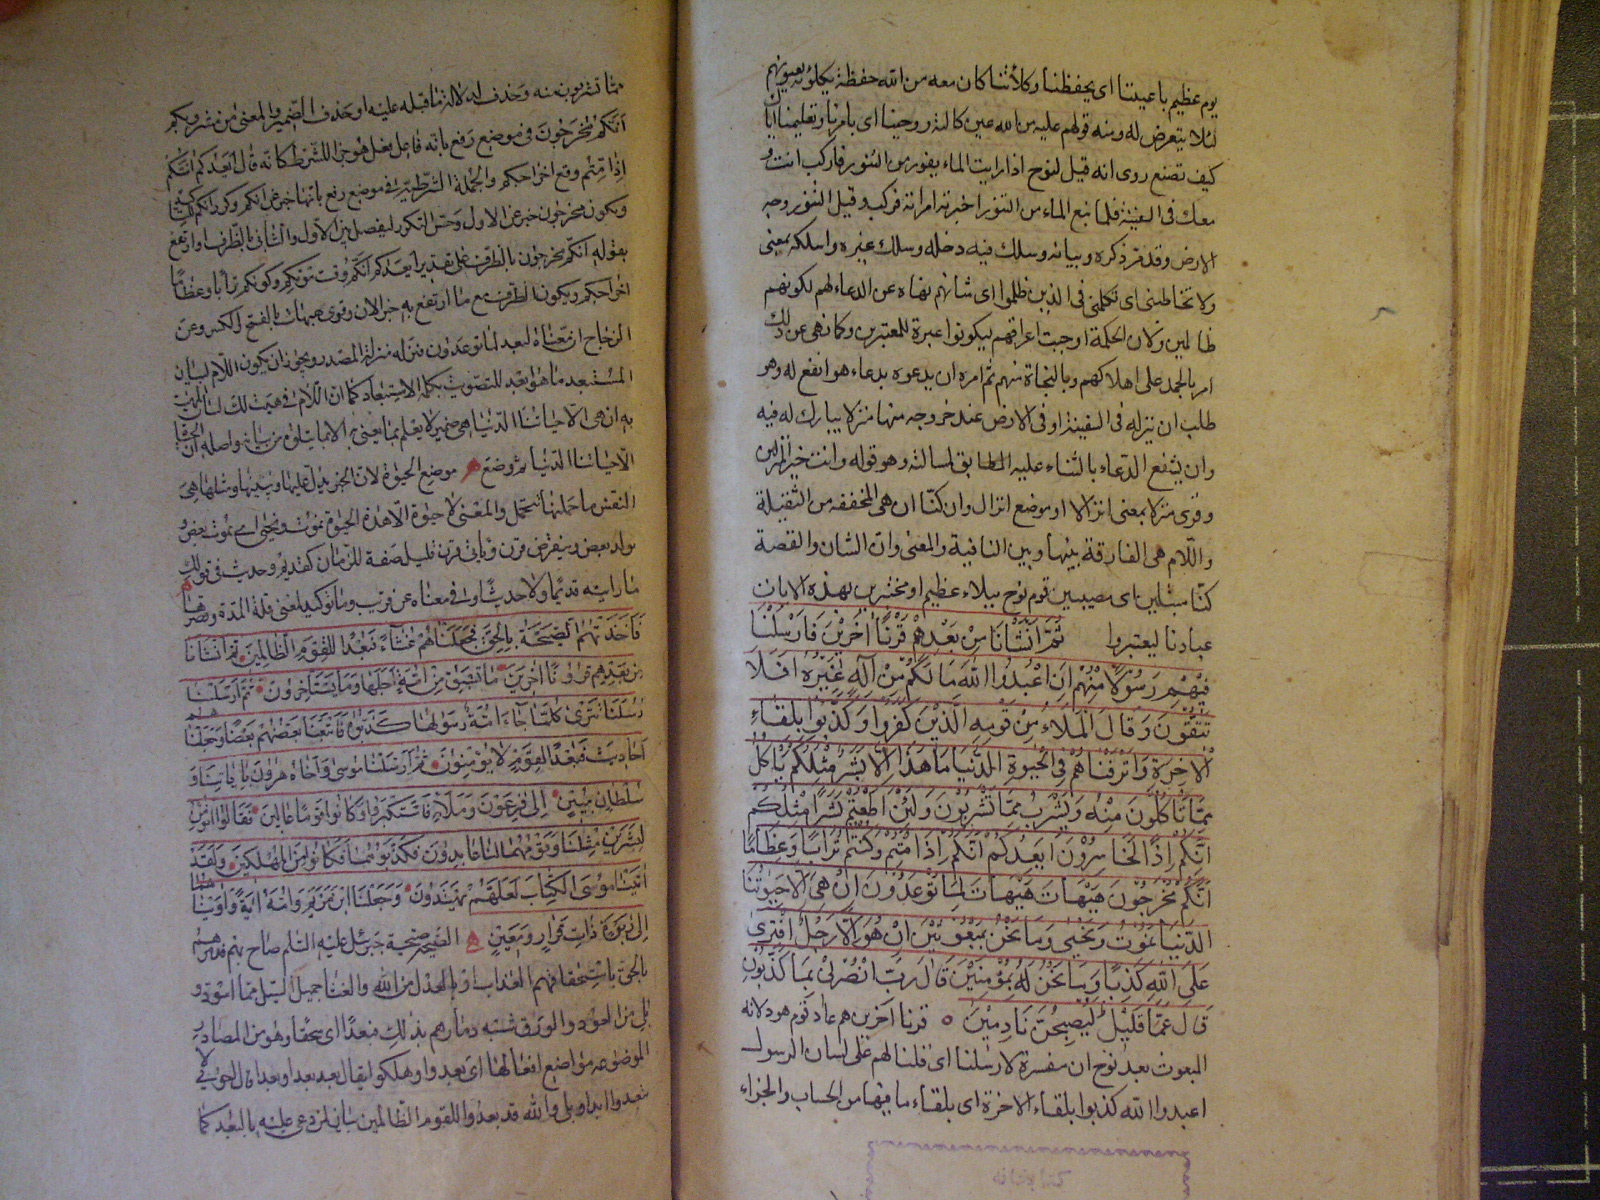 يوم عظيم باعيننا اى بحفظنا وكلأتنا كان معه من الله حفظة يكلؤنه بعيونهم
لئلا يتعرض له ومنه قولهم عليه من الله عين كالئة ووحينا اى بامرنا وتعليمنا اياك
كيف تصنع روى انه قيل لنوح اذا رايت الماء يفور من التنور فاركب انت و
معك فى السفينة فلما نبع الماء من التنور اخبرته امراته فركب وقيل التنور وجه
الارض وقد مر ذكره وبيانه وسلك فيه دخله وسلك غيره واسلكه بمعنى
ولا تخاطبنى اى تكلمنى فى الذين ظلموا اى شانهم نهاه عن الدعاء لهم لكونهم
ظالمين ولان الحكمة اوجبت اغراقهم ليكونوا عبرة للمعتبرين وكما نهى عن ذلك
امر بالحمد على اهلاكهم وبالنجاة منهم ثم امره ان يدعوه بدعاء هو انفع له وهو
طلب ان ينزله فى السفينة او فى الارض عند خروجه منها منزلا يبارك له فيه
وان يشفع الدعاء بالثناء عليه المطابق لمسالته وهو قوله وانت خير المنزلين
وقرى منزلا بمعنى انزالا او موضع انزال وان كنا ان هى المخففه من الثقيلة
واللام هى الفارقة بينها وبين النافية والمعنى وان الشان والقصة
كنا مبتلين اى مصيبين قوم نوح ببلاء عظيم او مختبرين بهذه الايات
عبادنا ليعتبروا ثُمَّ اَنْشَأْنَا مِنْ بَعْدِهِمْ قَرْنًا آخَرِيْنَ فَاَرْسَلْنَا
فِيْهِمْ رَسُوْلًا مِنْهُمْ اَنِ اعْبُدُوا اللهَ مَا لَكُمْ مِنْ اِلَهٍ غَيْرُهُ اَفَلَا
تَتَّقُوْنَ وَقَالَ الْمَلَاءُ مِنْ قَوْمِهِ الَّذِيْنَ كَفَرُوْا وَكَذَّبُوْا بِلِقَاءِ
الْاٰخِرَةِ وَاَتْرَفْنَاهُمْ فِى الْحَيٰوةِ الدُّنْيَا مَا هَذَا اِلَّا بَشَرٌ مِثْلُكُمْ يَأْكُلُ
مِمَّا تَاْكُلُوْنَ مِنْهُ وَيَشْرَبُ مِمَّا تَشْرَبُوْنَ وَلَئِنْ اَطَعْتُمْ بَشَرًا مِثْلَكُمْ
اِنَّكُمْ اِذًا لَخَاسِرُوْنَ اَيَعِدُكُمْ اَنَّكُمْ اِذَا مِتُّمْ وَكُنْتُمْ تُرَابًا وَعِظَامًا
اَنَّكُمْ مُخْرَجُوْنَ هَيْهَاتَ هَيْهَاتَ لِمَا تُوْعَدُوْنَ اِنْ هِىَ اِلَّا حَيَوٰتُنَا
الدُّنْيَا نَمُوْتُ وَنَحْيٰى وَمَا نَحْنُ بِمَبْعُوْثِيْنَ اِنْ هُوَ اِلَّا رَجُلٌ افْتَرٰى
عَلَى اللهِ كَذِبًا وَمَا نَحْنُ لَهُ بِمُؤْمِنِيْنَ قَالَ رَبِّ انْصُرْنِىْ بِمَا كَذَّبُوْنِ
قَالَ عَمَّا قَلِيْلٍ لَيُصْبِحُنَّ نَادِمِيْنَ ه قرنا آخرين هم عاد قوم هود لانه
المبعوث بعد نوح ان مفسرة لارسلنا اى قلنا لهم على لسان الرسول
اعبدوا الله كذبوا بلقاء الاخرة اى بلقاء ما فيها من الحساب والجزاء
مما تشربون منه وحذف لدلالة ما قبله عليه او حذف الضمير والمعنى من مشروبكم
انكم مخرجون فى موضع رفع بانه فاعل بفعل هو جزا للشرط كانه قال ايعدكم انكم
اذا متم وقع اخراجكم والجملة الشرطية فى موضع رفع بانها خبر عن انكم وكرر انكم
ويكون مخرجون خبر عن الاول وحسن التكرير ليفصل بين الاول والثانى بالظرف او ارتفع
بقوله انكم مخرجون بالظرف على تقدير ايعدكم انكم وقت موتكم وكونكم ترابا وعظاما
اخراجكم ويكون الظرف مع ما ارتفع به خبر الان وقرى هيهات بالفتح والكسر وعن
الزجاج ان معناه البعد لما توعدون فنزله منزلة المصدر ويجوز ان يكون اللام لبيان
المستبعد ما هو بعد التصويت بكلمة الاستبعاد كما ان اللام فى هيت لك لبيان المهيت
به ان هى الا حياتنا الدنيا هى ضمير لا يعلم ما يعنى به الا بما يتلوه من بيانه واصله ان الحياة
الا حياتنا الدنيا ثم وضع هى موضع الحيوة لان الخبر يدل عليها ويبينها ومثلها هى
النفس ما حملتها تتحمل والمعنى لا حيوة الا هذه الحيوة نموت ونحيى اى يموت بعض و
يولد بعض وينقرض قرن وياتى قرن قليل صفة للزمان كقديم وحديث فى قولك
ما رايته قديما ولا حديثا وفى معناه عن قريب وما توكيد لمعنى قلة المدة وقصرها
فَاَخَذَتْهُمُ الصَّيْحَةُ بِالْحَقِّ فَجَعَلْنَاهُمْ غُثَاءً فَبُعْدًا لِلْقَوْمِ الظَّالِمِيْنَ ثُمَّ اَنْشَأْنَا
مِنْ بَعْدِهِمْ قُرُوْنًا آخَرِيْنَ مَا تَسْبِقُ مِنْ اُمَّةٍ اَجَلَهَا وَمَا يَسْتَأْخِرُوْنَ ثُمَّ اَرْسَلْنَا
رُسُلَنَا تَتْرٰى كُلَّمَا جَاءَ اُمَّةً رَسُوْلُهَا كَذَّبُوْهُ فَاَتْبَعْنَا بَعْضَهُمْ بَعْضًا وَجَعَلْنَاهُمْ
اَحَادِيْثَ فَبُعْدًا لِقَوْمٍ لَا يُؤْمِنُوْنَ ثُمَّ اَرْسَلْنَا مُوْسٰى وَاَخَاهُ هٰرُوْنَ بِاٰيَاتِنَا وَ
سُلْطَانٍ مُبِيْنٍ اِلٰى فِرْعَوْنَ وَمَلَائِهِ فَاسْتَكْبَرُوْا وَكَانُوْا قَوْمًا عَالِيْنَ فَقَالُوْا اَنُؤْمِنُ
لِبَشَرَيْنِ مِثْلِنَا وَقَوْمُهُمَا لَنَا عَابِدُوْنَ فَكَذَّبُوْهُمَا فَكَانُوْا مِنَ الْمُهْلَكِيْنَ وَلَقَدْ
اٰتَيْنَا مُوْسَى الْكِتَابَ لَعَلَّهُمْ يَهْتَدُوْنَ وَجَعَلْنَا ابْنَ مَرْيَمَ وَاُمَّهُ اٰيَةً وَاٰوَيْنَاهُمَا
اِلٰى رَبْوَةٍ ذَاتِ قَرَارٍ وَمَعِيْنٍ الصيحة صيحة جبرئيل عليه السلم صاح بهم فدمرهم
بالحق باستحقاقهم العذاب او بالعدل من الله والغثا حميل السيل مما اسود و
بلى من العود والورق شبه دمارهم بذلك فبعدا اى سحقا وهو من المصادر
الموضوعة مواضع افعالها اى بعدوا وهلكوا يقال بعد بعدا وبعدا
قد بعدوا للقوم الظالمين بيان لمن دعى عليه بالبعد كما
كتابخانه